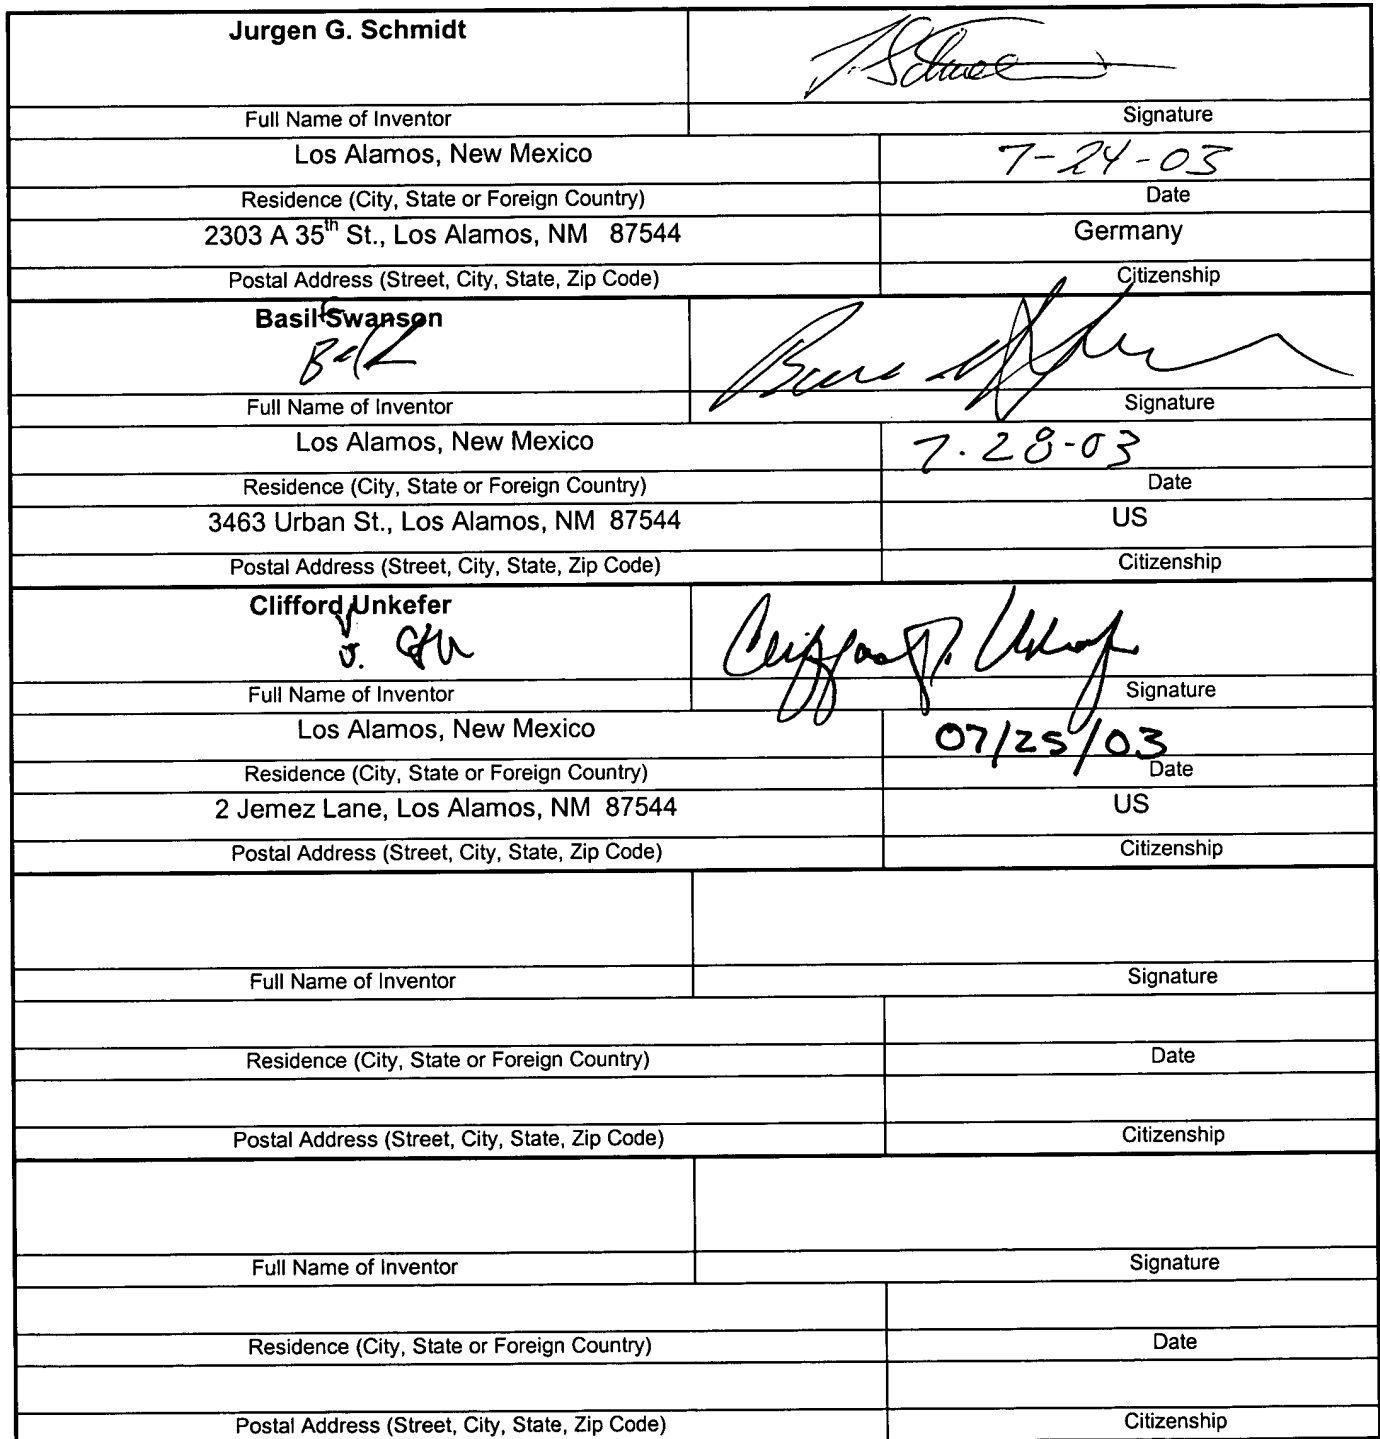 Jurgen G. Schmidt
Full Name of Inventor Signature
Los Alamos, New Mexico 7-24-03
Residence (City, State or Foreign Country) Date
2303 A 35th St., Los Alamos, NM 87544 Germany
Postal Address (Street, City, State, Zip Code) Citizenship
Basil Swanson
Full Name of Inventor Signature
Los Alamos, New Mexico 7.28-03
Residence (City, State or Foreign Country) Date
3463 Urban St., Los Alamos, NM 87544 US
Postal Address (Street, City, State, Zip Code) Citizenship
Clifford Unkefer
J. CJU Clifford J. Unkefer
Full Name of Inventor Signature
Los Alamos, New Mexico 07/25/03
Residence (City, State or Foreign Country) Date
2 Jemez Lane, Los Alamos, NM 87544 US
Postal Address (Street, City, State, Zip Code) Citizenship
Full Name of Inventor Signature
Residence (City, State or Foreign Country) Date
Postal Address (Street, City, State, Zip Code) Citizenship
Full Name of Inventor Signature
Residence (City, State or Foreign Country) Date
Postal Address (Street, City, State, Zip Code) Citizenship